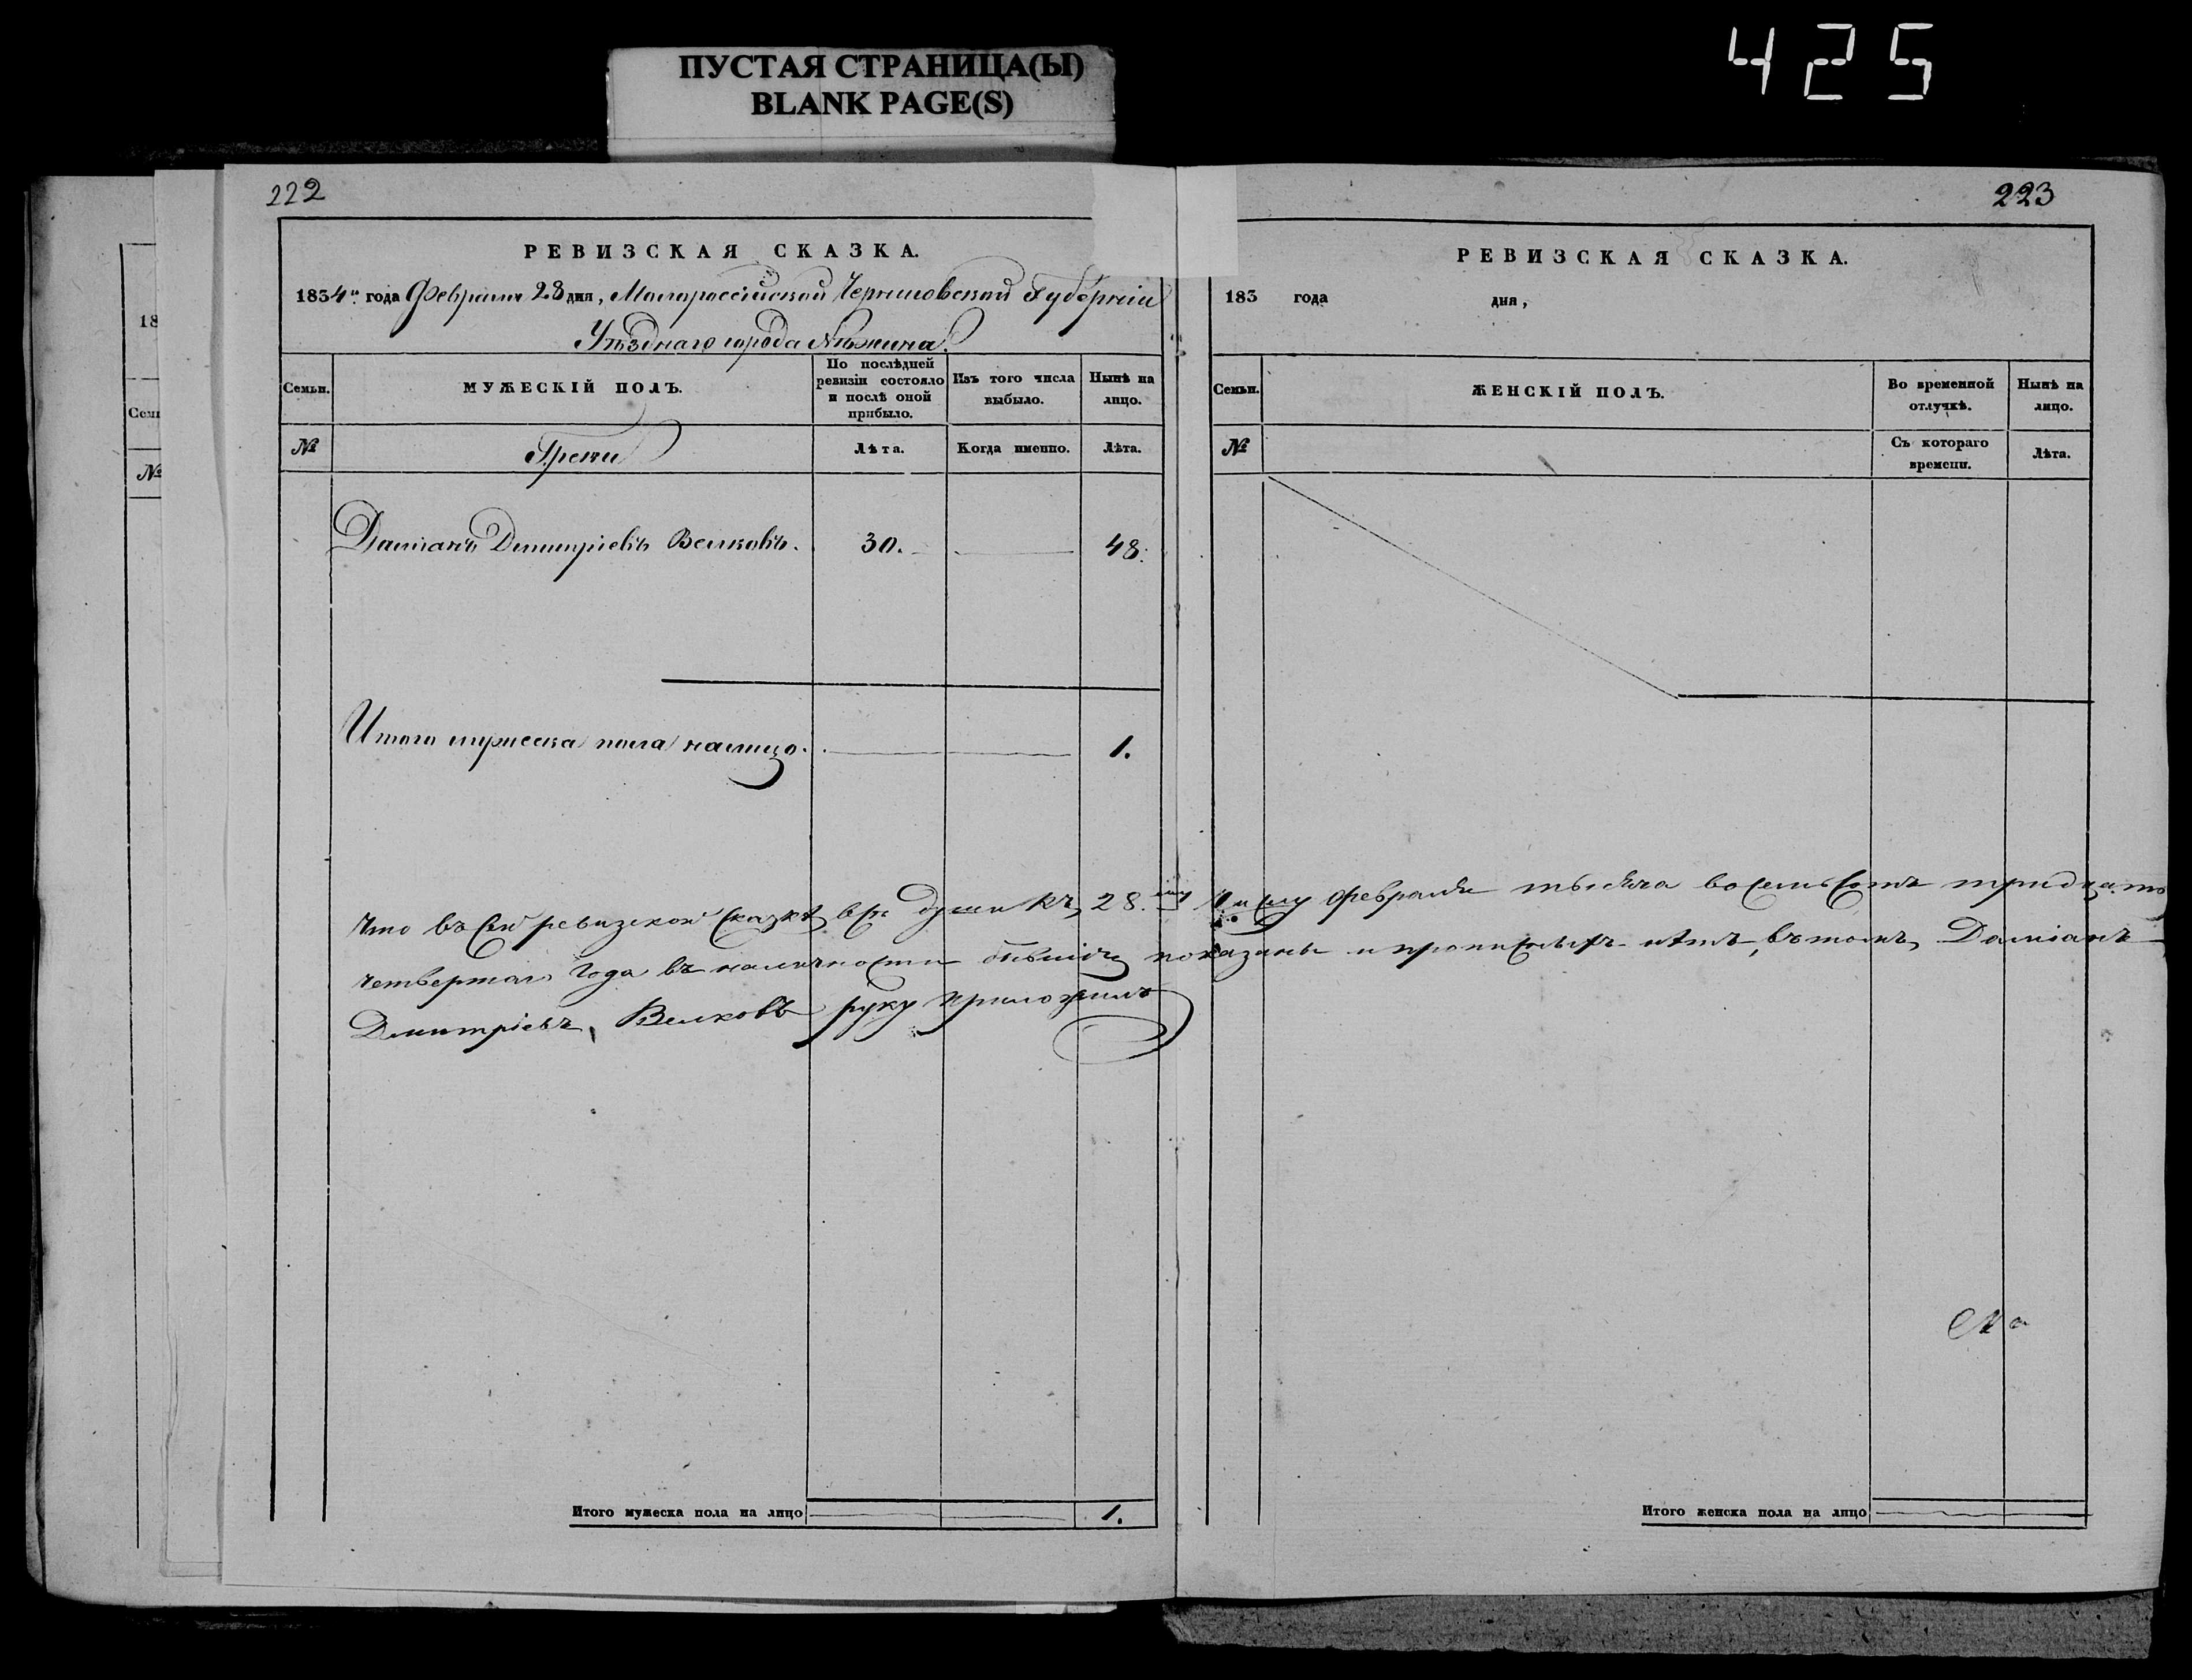 ПУСТАЯ СТРАНИЦА(Ы)
BLANK PAGE(S)
425
222
РЕВИЗСКАЯ СКАЗКА.
1834го года Февраля 28 дня, Малороссійской Черниговской Губерніи
Уѣзднаго города Нѣжина.
Семьи.
МУЖЕСКІЙ ПОЛЪ.
По послѣдней ревизіи состояло и послѣ оной прибыло.
Изъ того числа выбыло.
Нынѣ на лицо.
№
Греки
Лѣта.
Когда именно.
Лѣта.
Даміанъ Дмитріевъ Велковъ. 30. 48.
Итого мужеска пола налицо. 1.
Что въ сей ревизской сказкѣ всѣ души къ 28му числу февраля тысяча восемьсотъ тридцать
четвертаго года въ наличности бывшіе показаны и прописныхъ нѣтъ, въ томъ Даміанъ
Дмитріевъ Велковъ руку приложилъ
Итого мужеска пола на лицо 1.
223
РЕВИЗСКАЯ СКАЗКА.
183 года дня,
Семьи.
ЖЕНСКІЙ ПОЛЪ.
Во временной отлучкѣ.
Нынѣ на лицо.
№
Съ котораго времени.
Лѣта.
Итого женска пола на лицо
18
Семь
№